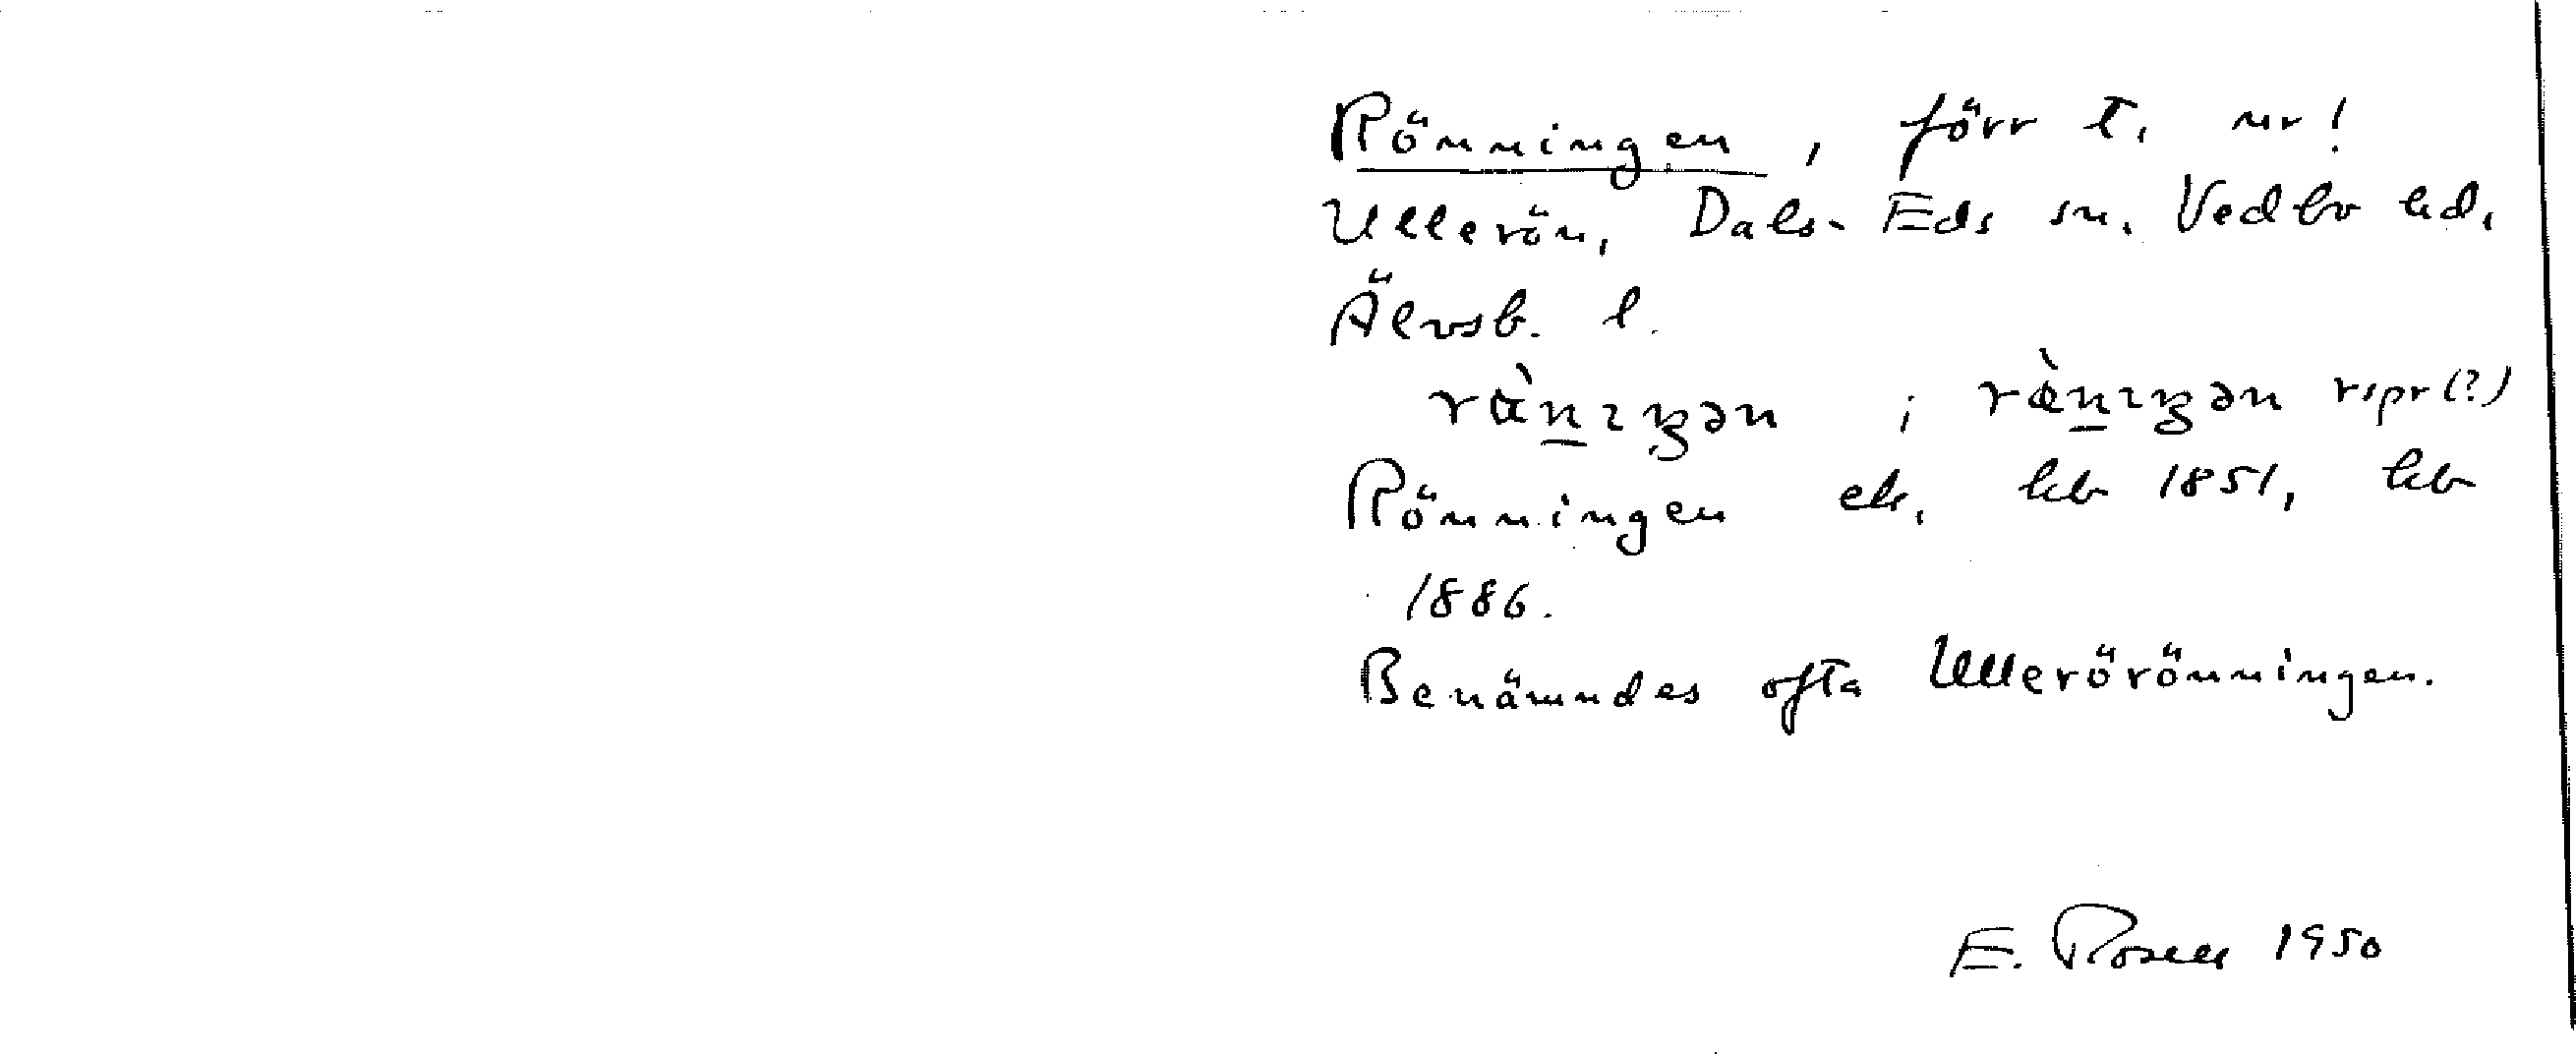 Rönningen, förr t. nr!
Ullerön, Dals-Eds sn. Vedbo hd.
Älvsb. l.
rǜnıŋən ; ræ̀nıŋən rspr (?)
Rönningen ek. kb 1851, kb
1886.
Benämndes ofta Ullerörönningen.
E. Rosell 1950